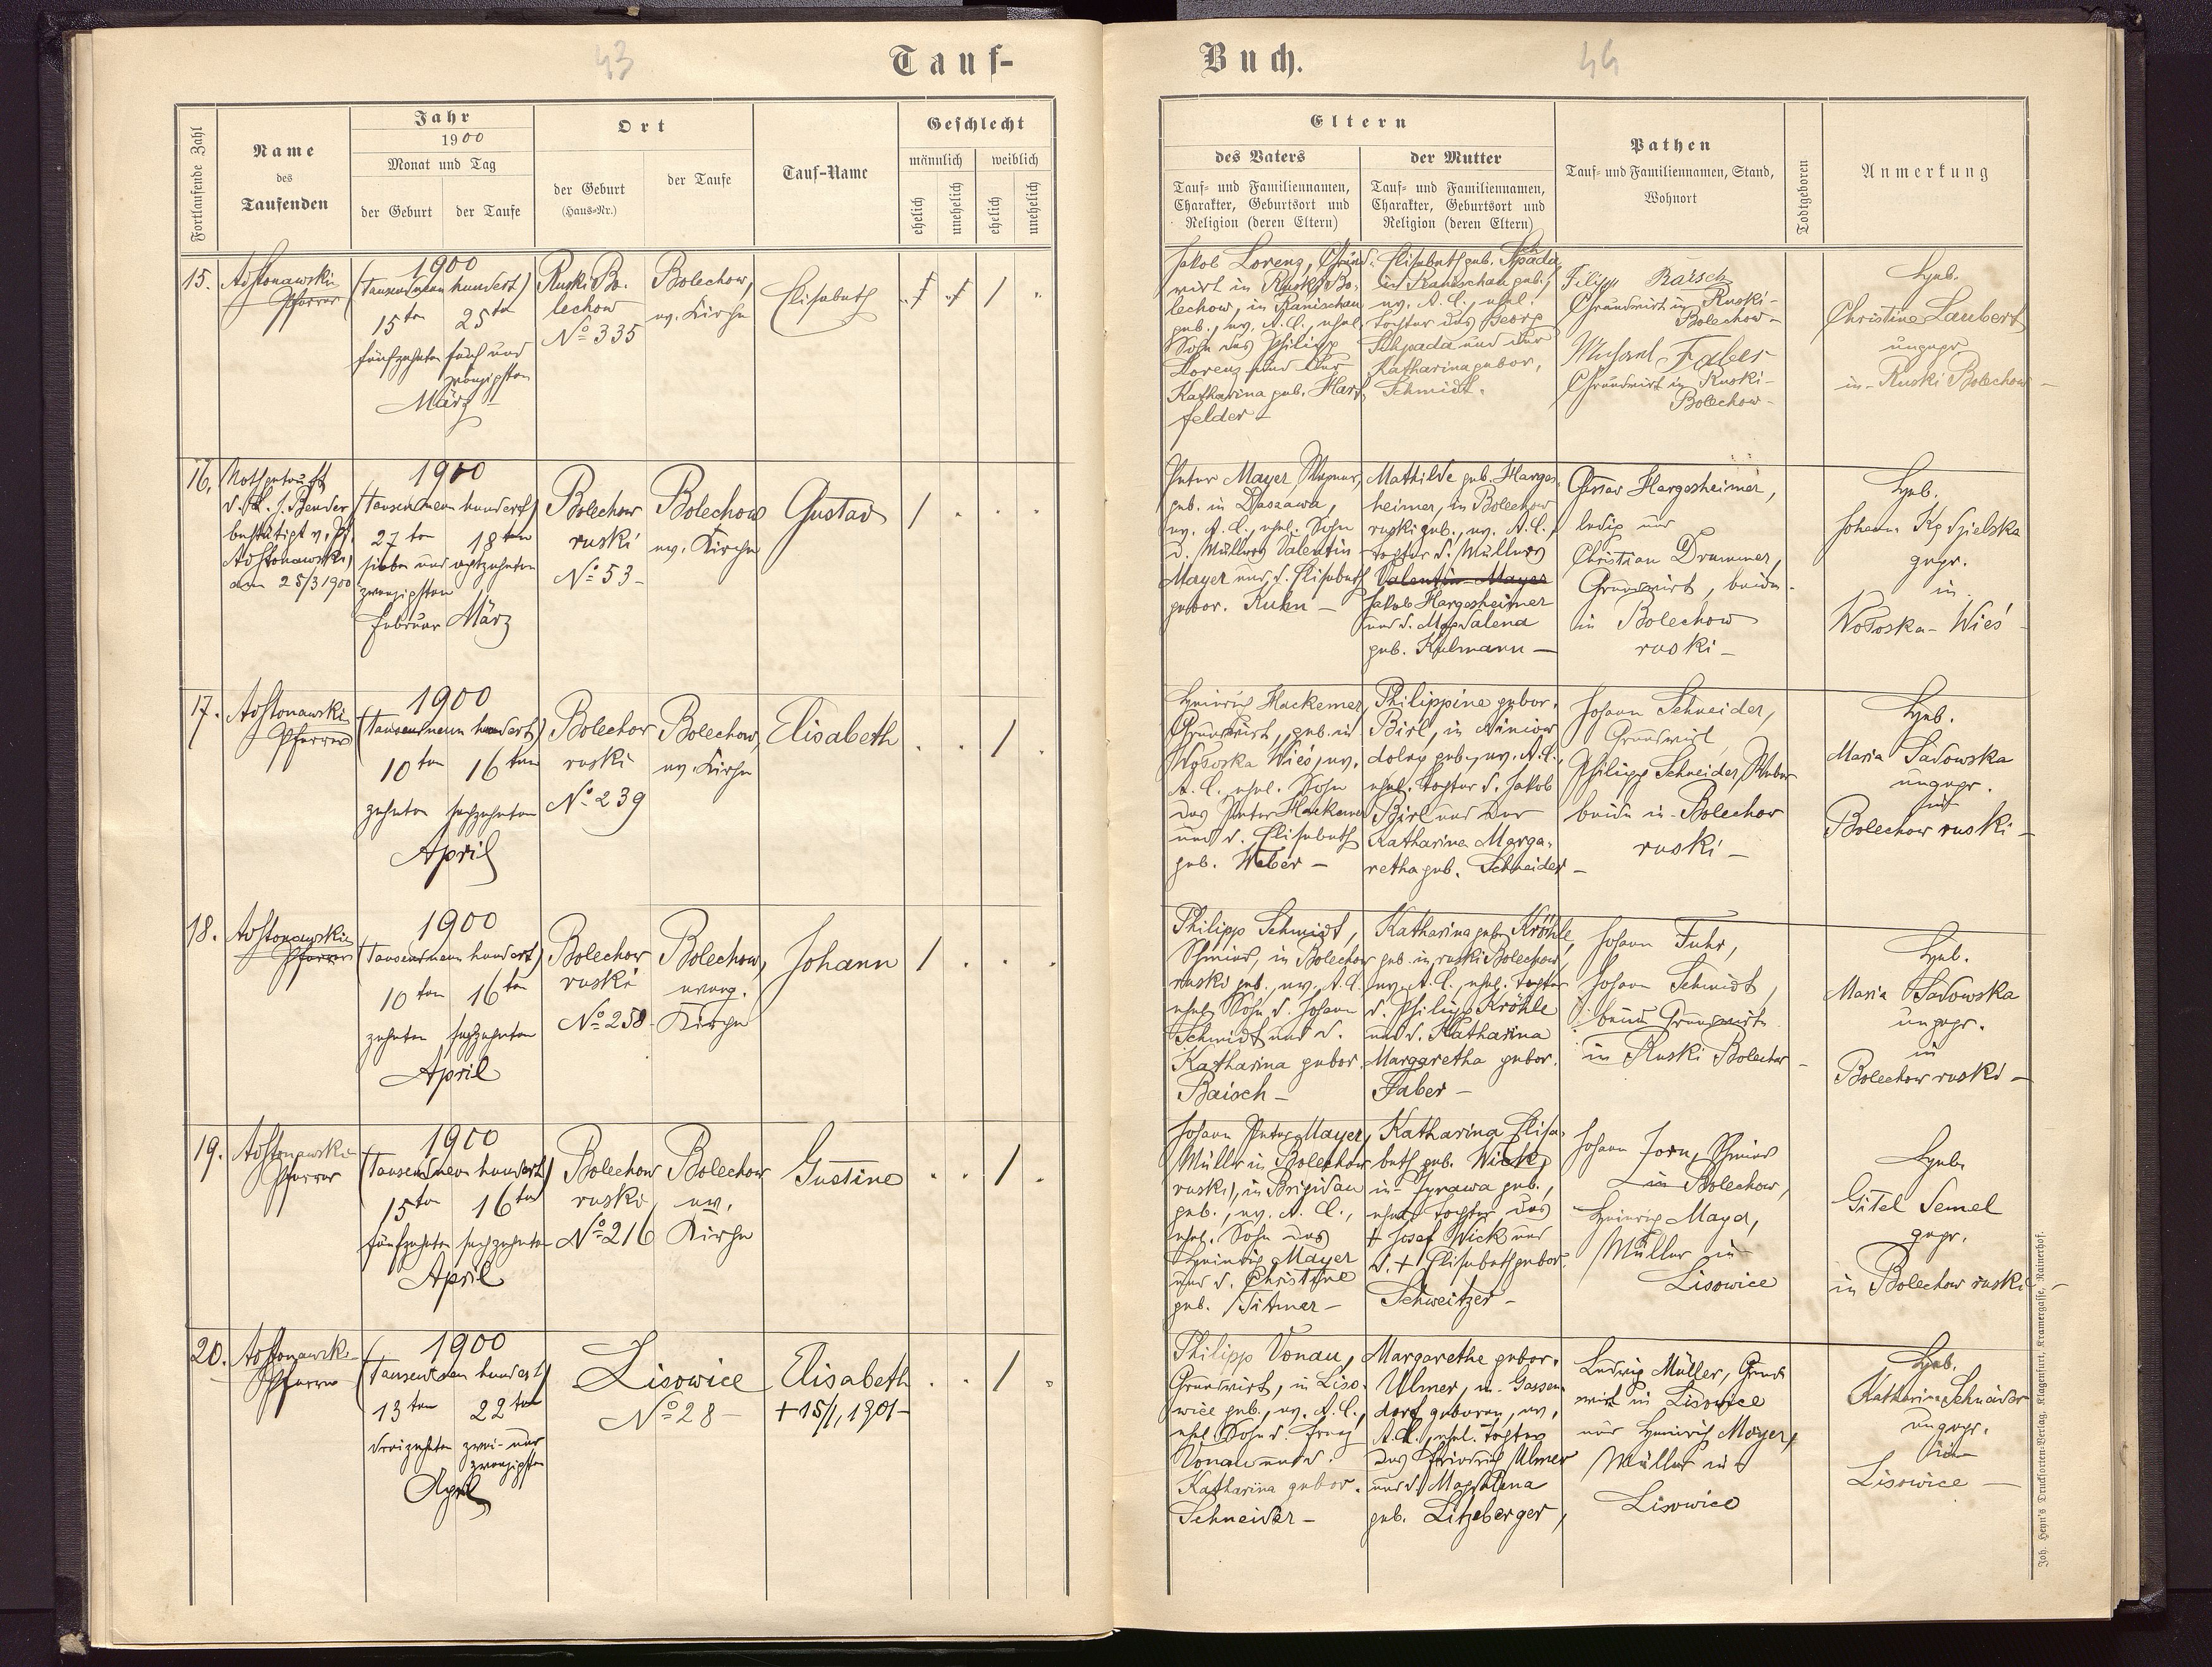 43
Tauf-
Fortlaufende Zahl
Name
des
Taufenden
Jahr
1900
Monat und Tag
der Geburt
der Taufe
Ort
der Geburt
(Haus-Nr.)
der Taufe
Tauf-Name
Geschlecht
männlich
weiblich
ehelich
unehelich
ehelich
unehelich
15.
Pfarrer
1900
(Tausendneunhundert)
15ten 25ten
fünfzehnten fünf und
zwanzigsten
März
Ruski Bo-
lechow
No 335
Bolechow,
ev. Kirche
Elisabeth
16.
Nothgetauft
v. J. Bender
bestätigt v. Pf.
am 25/3 1900
1900
(Tausendneunhundert)
27ten 18ten
sieben und achtzehnten
zwanzigsten
Februar März
Bolechow
ruski
No 53
Bolechow
ev. Kirche
Gustav
17.
Pfarrer
1900
(Tausendneunhundert)
10ten 16ten
zehnten sechzehnten
April
Bolechow
ruski
No 239
Bolechow,
ev. Kirche
Elisabeth
18.
Pfarrer
1900
(Tausendneunhundert)
10ten 16ten
zehnten sechzehnten
April
Bolechow
ruski
No 258
Bolechow,
evang.
Kirche
Johann
19.
Pfarrer
1900
(Tausendneunhundert)
15ten 16ten
fünfzehnten sechzehnten
April
Bolechow
ruski,
No 216
Bolechow
ev.
Kirche
Gustine
20.
Pfarrer
1900
(Tausendneunhundert)
13ten 22ten
dreizehnten zwei- und
zwanzigsten
April
Lisowice
No 28
Elisabeth
+ 15/1, 1901
Buch.
44
Eltern
des Vaters
Tauf- und Familiennamen,
Charakter, Geburtsort und
Religion (deren Eltern)
der Mutter
Tauf- und Familiennamen,
Charakter, Geburtsort und
Religion (deren Eltern)
Pathen
Tauf- und Familiennamen, Stand,
Wohnort
Todtgeboren
Anmerkung
Jakob Lorenz, Grund-
wirt in Ruski Bo-
lechow, in Ranischau
geb., ev. A. C., ehel.
Sohn des Philipp
Lorenz und der
Katharina geb. Harf
felder
Elisabeth geb. Schpada
in Ranischau geb.,
ev. A. C., ehel.
Tochter des Georg
Schpada und der
Katharina gebor.
Schmidt.
Filipp Baisch
Grundwirt in Ruski-
Bolechow
Faber
Grundwirt in Ruski-
Bolechow
Heb.
Christine Laubert
ungepr.
in Ruski Bolechow
Peter Mayer
geb. in Daszawa,
ev. A. C., ehel. Sohn
d. Müllers Valentin
Mayer und d. Elisabeth
gebor. Kuhn
Mathilde geb. Harges-
heimer, in Bolechow
ruski geb., ev. A. C.,
Tochter d. Müllers
Valentin Mayer
Jakob Hargesheimer
und d. Magdalena
geb. Kulmann
Gustav Hargesheimer,
ledig und
Christian Drummer,
Grundwirt, beide
in Bolechow
ruski
Heb.
gepr.
in
Wołoska-Wieś
Heinrich Hackemer,
Grundwirt, geb. in
Wołoska Wieś, ev.
A. C. ehel. Sohn
des Peter Hackemer
und d. Elisabeth
geb. Weber
Philippine gebor.
Birl, in
geb., ev. A. C.,
ehel. Tochter d. Jakob
Birl und der
Katharina Marga-
retha geb. Schneider
Johann Schneider,
Grundwirt
Philipp Schneider,
beide in Bolechow
ruski
Heb.
Maria Sadowska
ungepr.
in
Bolechow ruski
Philipp Schmidt,
Schmied, in Bolechow
ruski geb., ev. A. C.
ehel. Sohn d. Johann
Schmidt und d.
Katharina gebor.
Baisch
Katharina geb. Kröhle,
geb. in ruski Bolechow,
ev. A. C., ehel. Tochter
d. Philipp Kröhle
und d. Katharina
Margaretha gebor.
Faber
Johann Fuhr,
Johann Schmidt,
beide Grundwirte
in Ruski Bolechow
Heb.
Maria Sadowska
ungepr.
in
Bolechow ruski
Johann Peter Mayer,
Müller in Bolechow
ruski, in Brigidau
geb., ev. A. C.,
ehel. Sohn des
Heinrich Mayer
und d. Christine
geb. Titmer
Katharina Elisa-
beth geb. Wick,
in geb.,
ehel. Tochter des
+ Josef Wick und
d. + Elisabeth gebor.
Schweitzer
Johann Jorn, Schmied
in Bolechow,
Heinrich Mayer,
Müller in
Lisowice
Heb.
Gitel Semel
gepr.
in Bolechow ruski
Philipp Vonau,
Grundwirt, in Liso-
wice geb., ev. A. C.,
ehel. Sohn d.
Vonau und d.
Katharina gebor.
Schneider
Margarethe gebor.
Ulmer, in Gassen-
dorf geboren, ev.
A. C., ehel. Tochter
des Friedrich Ulmer
und d. Magdalena
geb. Litzeberger,
Ludwig Müller, Grund-
wirt in Lisowice
und Heinrich Mayer,
Müller in
Lisowice
Heb.
Katharina Schneider
ungepr.
in
Lisowice
Joh. Heyn's Drucksorten-Verlag, Klagenfurt, Kramergasse, Rainerhof.